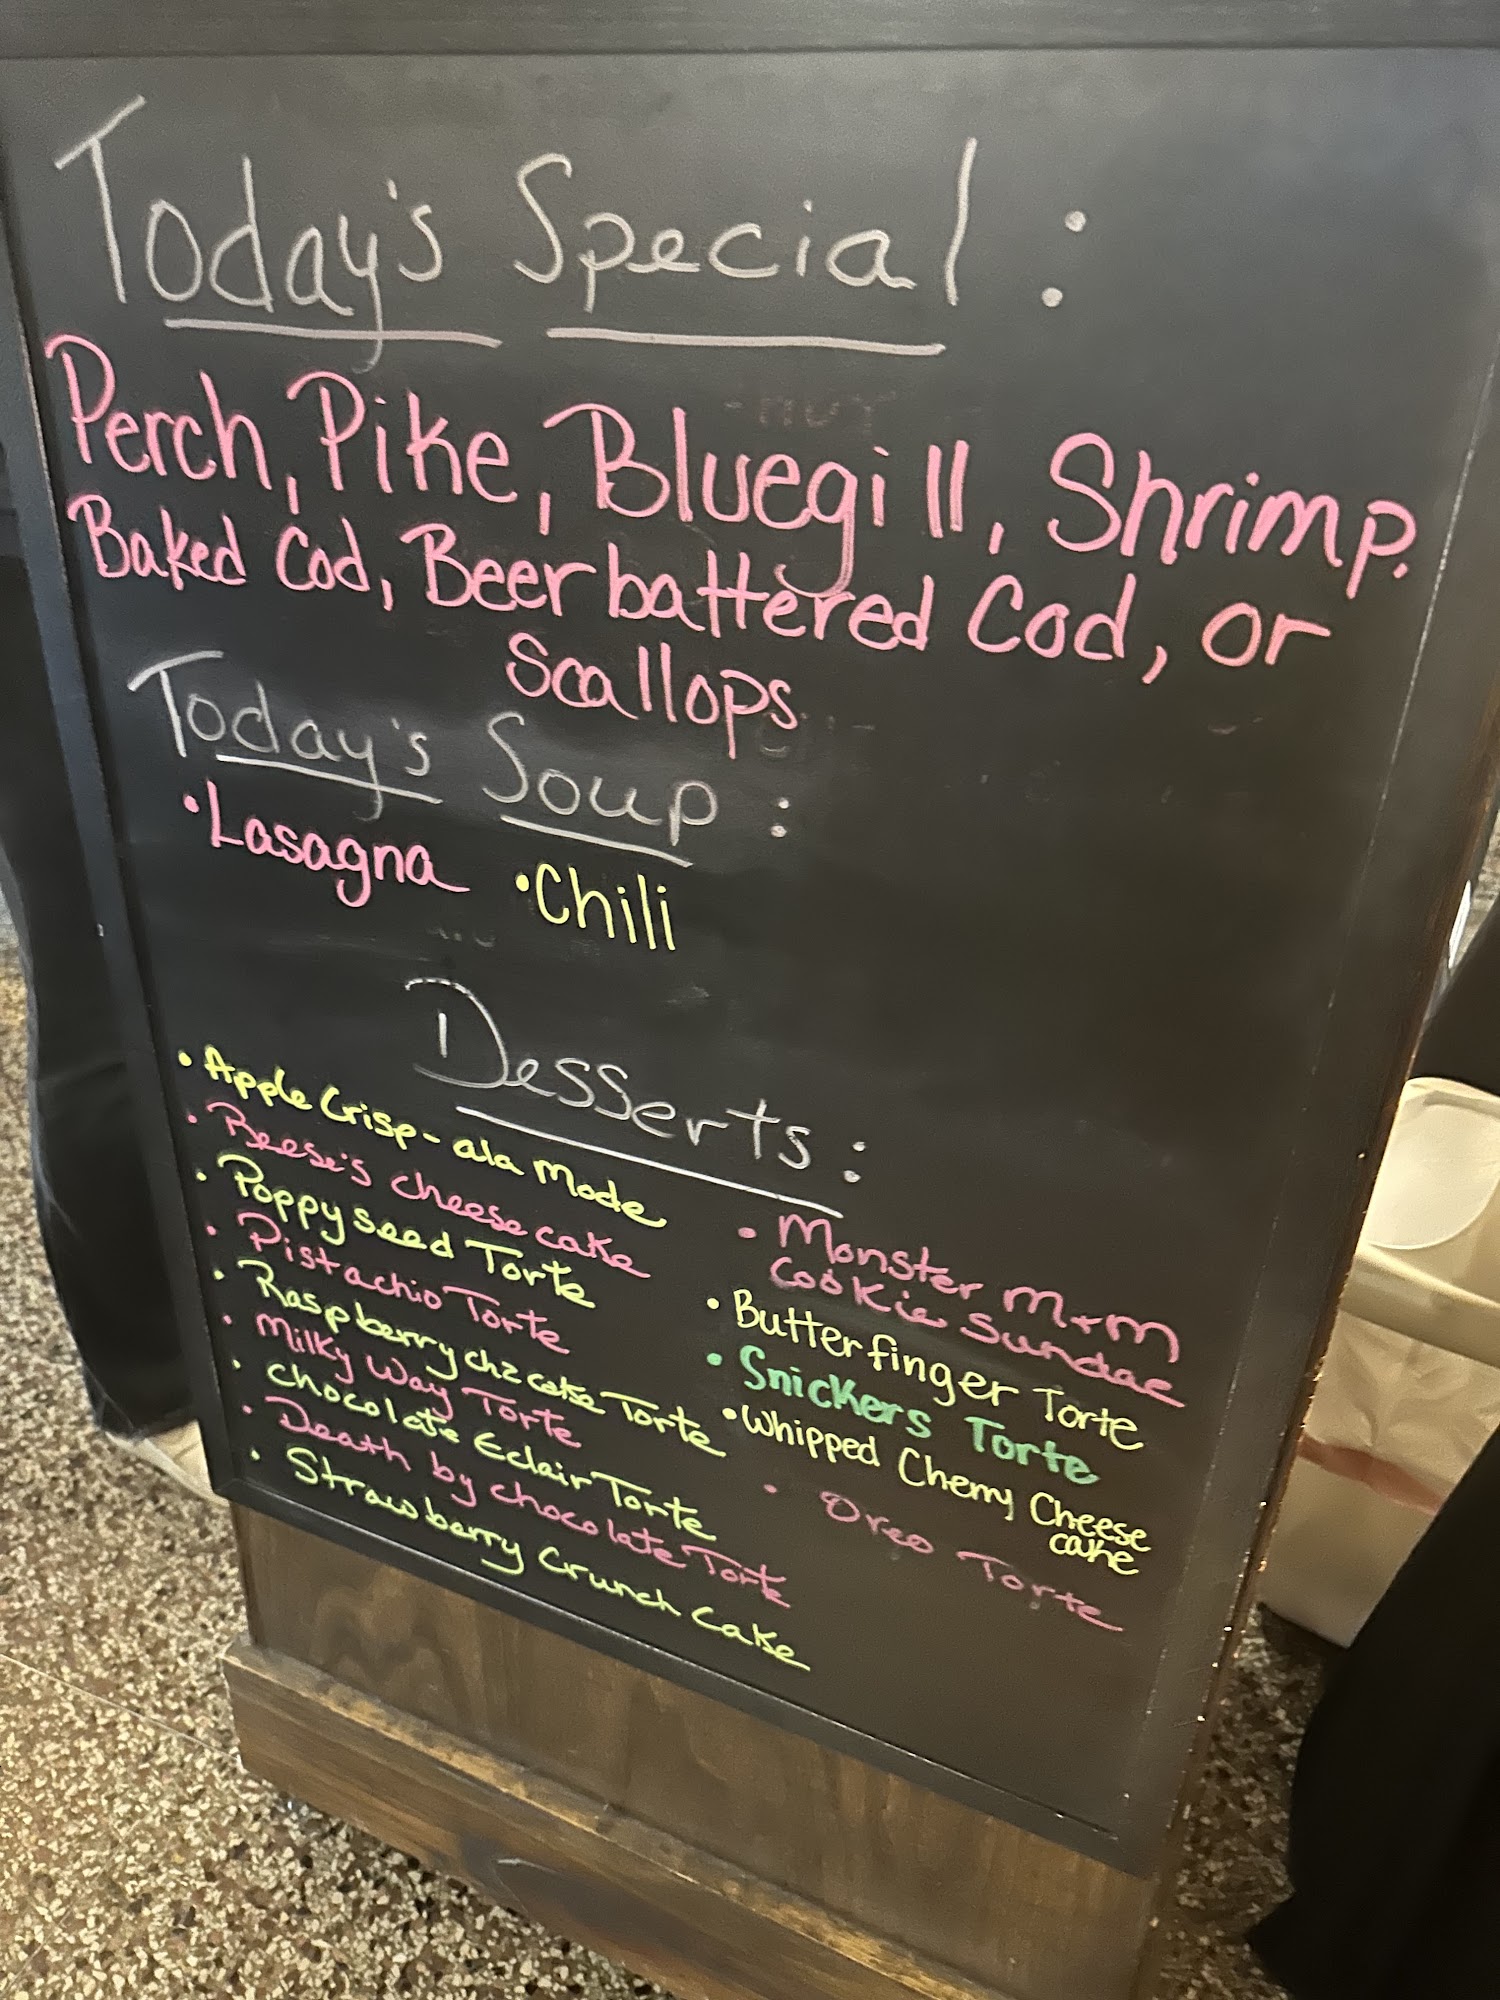 Today's Special:
Perch, Pike, Bluegill, Shrimp.
Baked Cod, Beer battered Cod, or
Scallops
Today's Soup:
• Lasagna • Chili
Desserts:
• Apple Crisp - ala Mode
• Reese's cheese cake
• Poppyseed Torte
• Pistachio Torte
• Raspberry chz cake Torte
• Milky Way Torte
• chocolate Eclair Torte
• Death by chocolate Torte
• Strawberry Crunch Cake
• Monster m+m
Cookie Sundae
• Butterfinger Torte
• Snickers Torte
• Whipped Cherry Cheese
cake
• Oreo Torte